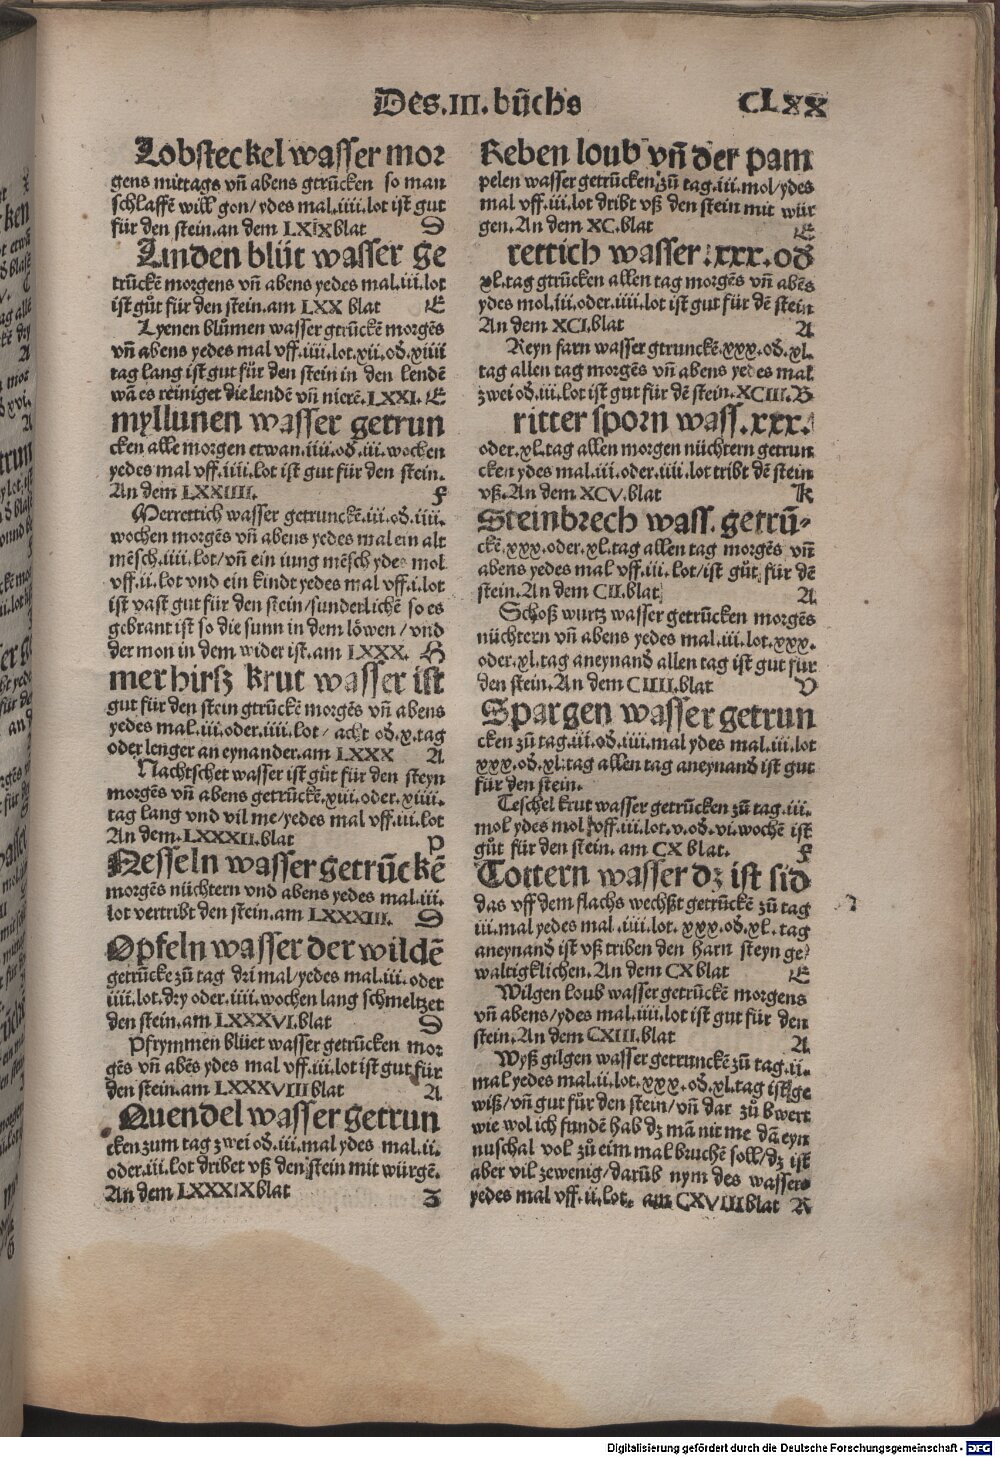 Des.III.bůchs
CLXX
Lobsteckel wasser mor
gens mittags vñ abens gtrücken so man
schlaffē will gon/ydes mal.iiii.lot ist gut
für den stein.an dem LXIX blat D
Linden blüt wasser ge
trückē morgens vñ abens yedes mal.iii.lot
ist gůt für den stein.am LXX blat E
Lyenen blůmen wasser gtrückē morgēs
vñ abens yedes mal vff.iiii.lot.xii.od̄.xiiii
tag lang ist gut für den stein in den lendē
wā es reiniget die lendē vñ nierē.LXXI.E
myllunen wasser getrun
cken alle morgen etwan.iiii.od̄.iii.wochen
yedes mal vff.iiii.lot ist gut für den stein.
An dem LXXIIII. F
Merrettich wasser getrunckē.iii.od̄.iiii.
wochen morgēs vñ abens yedes mal ein alt
mēsch.iiii.lot/vñ ein iung mēsch ydes mol
vff.ii.lot vnd ein kindt yedes mal vff.i.lot
ist vast gut für den stein/sunderlichē so es
gebrant ist so die sunn in dem löwen/vnd
der mon in dem wider ist.am LXXX. H
mer hirsz krut wasser ist
gut für den stein gtrückē morgēs vñ abens
yedes mal.iii.oder.iiii.lot/ acht od̄.x.tag
oder lenger an eynander.am LXXX A
Nachtschet wasser ist gůt für den steyn
morgēs vñ abens getrückē.xiii.oder.xiiii.
tag lang vnd vil me/yedes mal vff.iii.lot
An dem.LXXXII.blat P
Nesseln wasser getrūckē
morgēs nüchtern vnd abens yedes mal.iii.
lot vertribt den stein.am LXXXIII. D
Opfeln wasser der wildē
getrücke zů tag dri mal/yedes mal.iii.oder
iiii.lot.dry oder.iiii.wochen lang schmeltzet
den stein.am LXXXVI.blat D
Pfrymmen blüet wasser getrücken mor
gēs vñ abēs ydes mal vff.iii.lot ist gut für
den stein.am LXXXVIII blat A
Quendel wasser getrun
cken zum tag zwei od̄.iii.mal ydes mal.ii.
oder.iii.lot dribet vß den stein mit würgē.
An dem LXXXIX blat Z
Reben loub vñ der pam
pelen wasser getrücken zů tag.iii.mol/ydes
mal vff.iii.lot dribt vß den stein mit wür
gen.An dem XC.blat E
rettich wasser.xxx.od̄
xl.tag gtrücken allen tag morgēs vñ abēs
ydes mol.iii.oder.iiii.lot ist gut für dē stein
An dem XCI.blat A
Reyn farn wasser gtrunckē.xxx.od̄.xl.
tag allen tag morgēs vñ abens yedes mal
zwei od̄.iii.lot ist gut für dē stein.XCIII.B
ritter sporn wass.xxx.
oder.xl.tag allen morgen nüchtern getrun
cken ydes mal.iii.oder.iiii.lot tribt dē stein
vß.An dem XCV.blat K
Steinbrech wass.getrū-
ckē.xxx.oder.xl.tag allen tag morgēs vñ
abens yedes mal vff.iii.lot/ist gůt für dē
stein.An dem CII.blat A
Schoß wurtz wasser getrücken morgēs
nüchtern vñ abens yedes mal.iii.lot.xxx.
oder.xl.tag aneynand̄ allen tag ist gut für
den stein.An dem CIIII.blat V
Spargen wasser getrun
cken zů tag.iii.od̄.iiii.mal ydes mal.iii.lot
xxx.od̄.xl.tag allen tag aneynand̄ ist gut
für den stein.
Teschel krut wasser getrücken zů tag.iii.
mol ydes mol vff.iii.lot.v.od̄.vi.wochē ist
gůt für den stein.am CX blat. F
Tottern wasser dz ist sid
das vff dem flachs wechßt getrückē zů tag
iii.mal yedes mal.iiii.lot.xxx.od̄.xl.tag
aneynand̄ ist vß triben den harn steyn ge/
waltigklichen.An dem CX blat E
Wilgen loub wasser getrückē morgens
vñ abens/ydes mal.iiii.lot ist gut für den
stein.An dem CXIII.blat A
Wyß gilgen wasser getrunckē zů tag.ii.
mal yedes mal.ii.lot.xxx.od̄.xl.tag ist ge
wiß/vñ gut für den stein/vñ dar zů bwert
wie wol ich fundē hab dz mā nit me dā eyn
nuschal vol zů eim mal bruchē soll/dz ist
aber vil zewenig/darūb nym des wassers
yedes mal vff.ii.lot. am CXVIII blat R
Digitalisierung gefördert durch die Deutsche Forschungsgemeinschaft - DFG